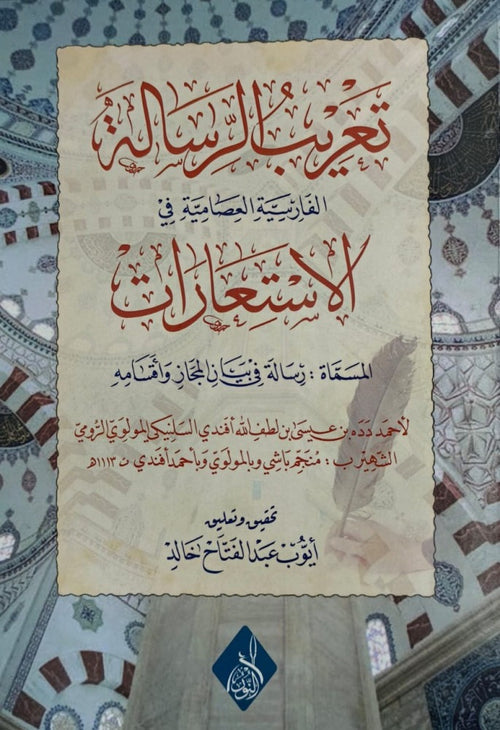 تَعْرِيبُ الرِّسَالَةِ
الفَارِسِيَّةِ العِصَامِيَّةِ فِيْ
الاسْتِعَارَاتِ
المُسَمَّاة : رِسَالَة فِيْ بَيَانِ المَجَازِ وَأَقْسَامِهِ
لأحمد دَدَه بن عيسىٰ بن لطف الله أفندي السلنيكي المولويّ الرُّوميّ
الشهير ب : مُنَجِّم بَاشِي وبالمولويّ وبأحمد أفندي ت ١١١٣هـ
تحقيق وتعليق
أيُّوبْ عَبْدالفَتَّاحْ خَالِدْ